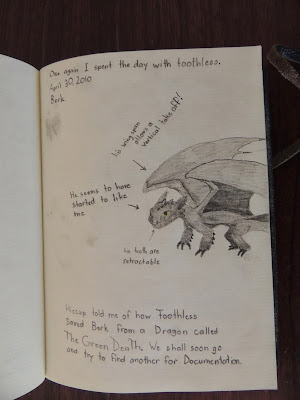 Once again I spent the day with toothless.
April 30, 2010
Berk.
his wing span
allows a
vertical take off!
He seems to have
started to like
me
his teeth are
retractable
Hiccup told me of how Toothless
saved Berk from a Dragon called
The Green Death. We shall soon go
and try to find another for Documentation.